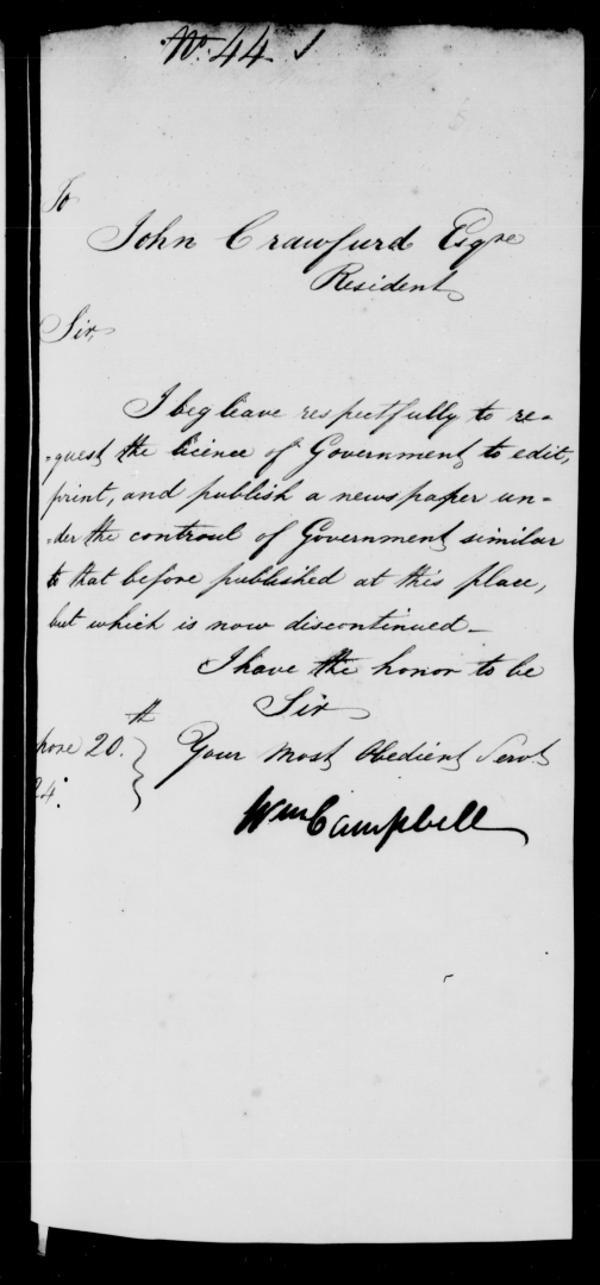 No. 44
To
John Crawfurd Esqre
Resident
Sir,
I beg leave respectfully to re=
=quest the licence of Government to edit,
print, and publish a newspaper un=
=der the controul of Government similar
to that before published at this place,
but which is now discontinued_
I have the honor to be
Sir
pore 20th } Your Most Obedient Servt
24.
Wm Campbell